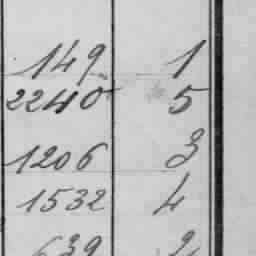 149 1
2240 5
1206 3
1532 4
639 2